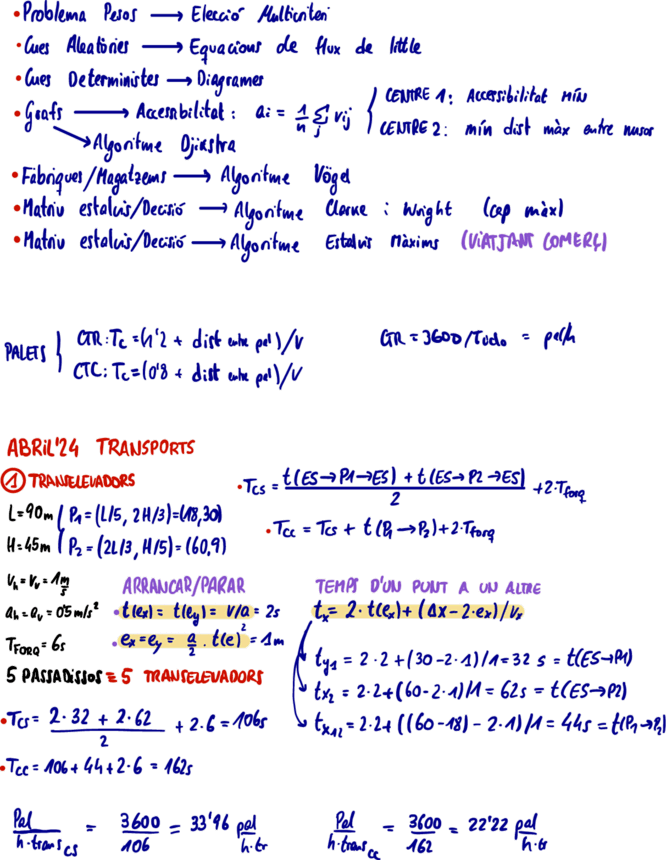 • Problema Pesos ⟶ Elecció Multicriteri
• Cues Aleatòries ⟶ Equacions de flux de little
• Cues Deterministes ⟶ Diagrames
• Grafs ⟶ Accesabilitat : ai = 1/n Σj vij { CENTRE 1: Accessibilitat MÍN
CENTRE 2: mín dist màx entre nusos
→ Algoritme Djikstra
• Fàbriques/Magatzems ⟶ Algoritme Vögel
• Matriu estalvis/Decisió ⟶ Algoritme Clarke i Wright (cap màx)
• Matriu estalvis/Decisió ⟶ Algoritme Estalvis Màxims (VIATJANT COMERÇ)
PALETS { CTR: Tc = (1'2 + dist entre pal)/v
CTC: Tc = (0'8 + dist entre pal)/v
GTR = 3600/Tciclo = pal/h
ABRIL'24 TRANSPORTS
① TRANSELEVADORS
L = 90m { P1 = (L/5, 2H/3) = (18,30)
H = 45m { P2 = (2L/3, H/5) = (60,9)
• Tcs = t(ES→P1→ES) + t(ES→P2→ES) / 2 + 2·Tforq
• Tcc = Tcs + t(P1→P2) + 2·Tforq
Vh = Vv = 1 m/s
ah = av = 0'5 m/s²
TFORQ = 6s
5 PASSADISSOS = 5 TRANSELEVADORS
ARRANCAR/PARAR
• t(ex) = t(ey) = v/a = 2s
• ex = ey = a/2 · t(e)² = 1m
TEMPS D'UN PUNT A UN ALTRE
tx = 2·t(ex) + (Δx - 2·ex)/vx
ty1 = 2·2 + (30 - 2·1)/1 = 32 s = t(ES→P1)
tx2 = 2·2 + (60 - 2·1)/1 = 62s = t(ES→P2)
tx12 = 2·2 + ((60 - 18) - 2·1)/1 = 44s = t(P1→P2)
• Tcs = 2·32 + 2·62 / 2 + 2·6 = 106s
• Tcc = 106 + 44 + 2·6 = 162s
Pal/h·trans cs = 3600/106 = 33'96 pal/h·tr
Pal/h·trans cc = 3600/162 = 22'22 pal/h·tr